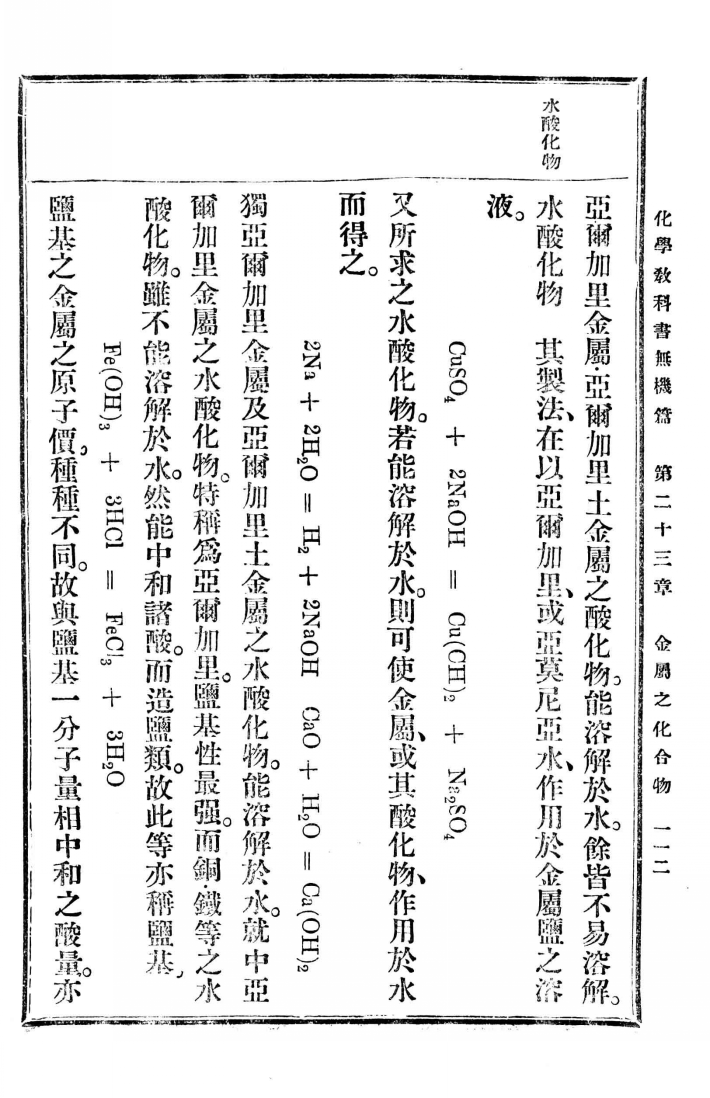 化學敎科書無機篇　第二十三章　金屬之化合物　一一二
水酸化物
亞爾加里金屬·亞爾加里土金屬之酸化物。能溶解於水。餘皆不易溶解。
水酸化物　其製法、在以亞爾加里、或亞莫尼亞水、作用於金屬鹽之溶
液。
CuSO₄ + 2NaOH = Cu(OH)₂ + Na₂SO₄
又所求之水酸化物。若能溶解於水。則可使金屬、或其酸化物、作用於水
而得之。
2Na + 2H₂O = H₂ + 2NaOH　CaO + H₂O = Ca(OH)₂
獨亞爾加里金屬及亞爾加里土金屬之水酸化物。能溶解於水。就中亞
爾加里金屬之水酸化物。特稱爲亞爾加里。鹽基性最强。而銅·鐵等之水
酸化物。雖不能溶解於水。然能中和諸酸。而造鹽類。故此等亦稱鹽基。
Fe(OH)₃ + 3HCl = FeCl₃ + 3H₂O
鹽基之金屬之原子價。種種不同。故與鹽基一分子量相中和之酸量。亦